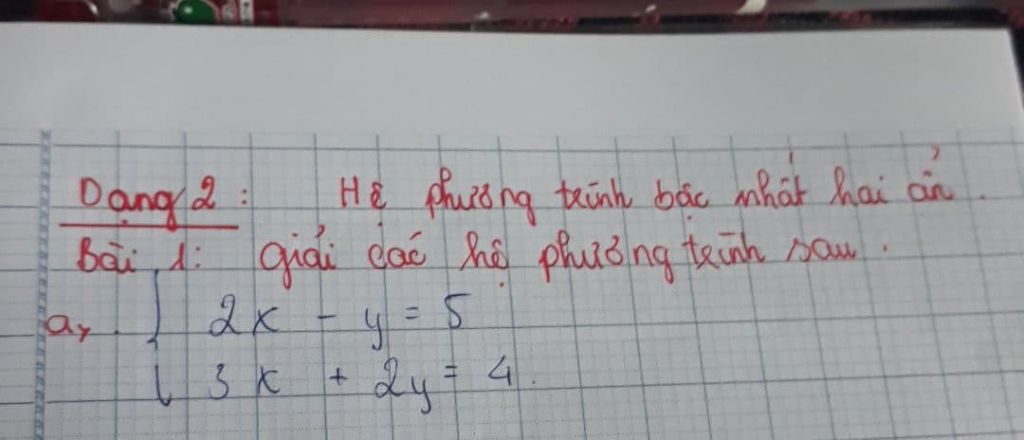 Dạng 2: Hệ phương trình bậc nhất hai ẩn.
Bài 1: giải các hệ phương trình sau.
a, { 2x - y = 5
3x + 2y = 4.